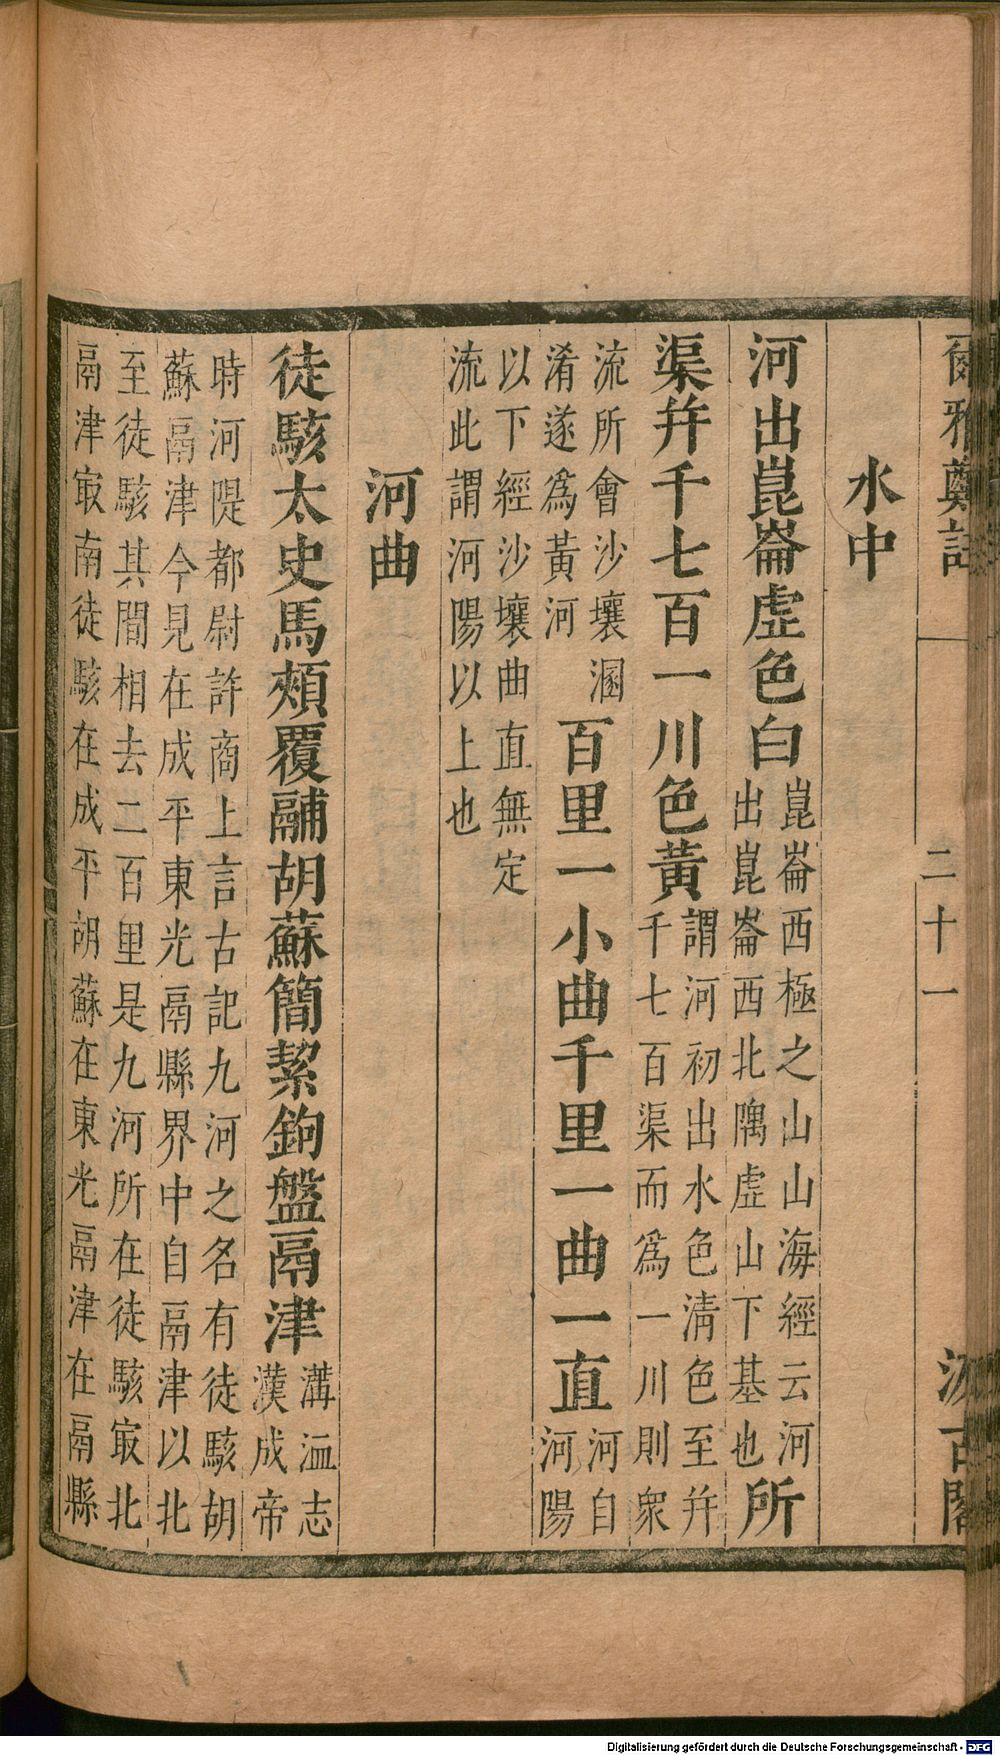 爾雅鄭註 二十一 汲古閣
水中
河出崑崙虛色白
崑崙西極之山山海經云河
出崑崙西北隅虛山下基也
所
渠并千七百一川色黃
謂河初出水色淸色至并
千七百渠而爲一川則衆
流所會沙壤溷
淆遂爲黃河
百里一小曲千里一曲一直
河自
河陽
以下經沙壤曲直無定
流此謂河陽以上也
河曲
徒駭太史馬頰覆鬴胡蘇簡絜鉤盤鬲津
溝洫志
漢成帝
時河隄都尉許商上言古記九河之名有徒駭胡
蘇鬲津今見在成平東光鬲縣界中自鬲津以北
至徒駭其間相去二百里是九河所在徒駭㝡北
鬲津㝡南徒駭在成平胡蘇在東光鬲津在鬲縣
Digitalisierung gefördert durch die Deutsche Forschungsgemeinschaft - DFG